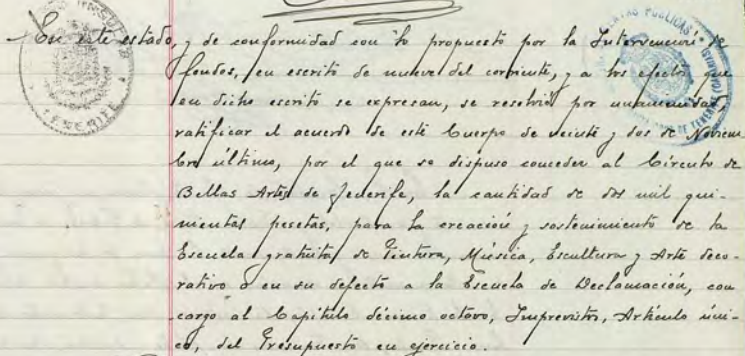 En este estado, y de conformidad con lo propuesto por la Intervención de
fondos, en escrito de nueve del corriente, y a los efectos que
en dicho escrito se expresan, se resolvió por unanimidad,
ratificar el acuerdo de este Cuerpo de veinte y dos de Noviem
bre último, por el que se dispuso conceder al Círculo de
Bellas Artes de Tenerife, la cantidad de dos mil qui-
nientas pesetas, para la creación y sostenimiento de la
Escuela gratuita de Pintura, Música, Escultura y Arte deco-
rativo o en su defecto a la Escuela de Declamación, con
cargo al Capítulo décimo octavo, Imprevistos, Artículo úni-
co, del Presupuesto en ejercicio.
TENERIFE
PUBLICAS
DE TENERIFE